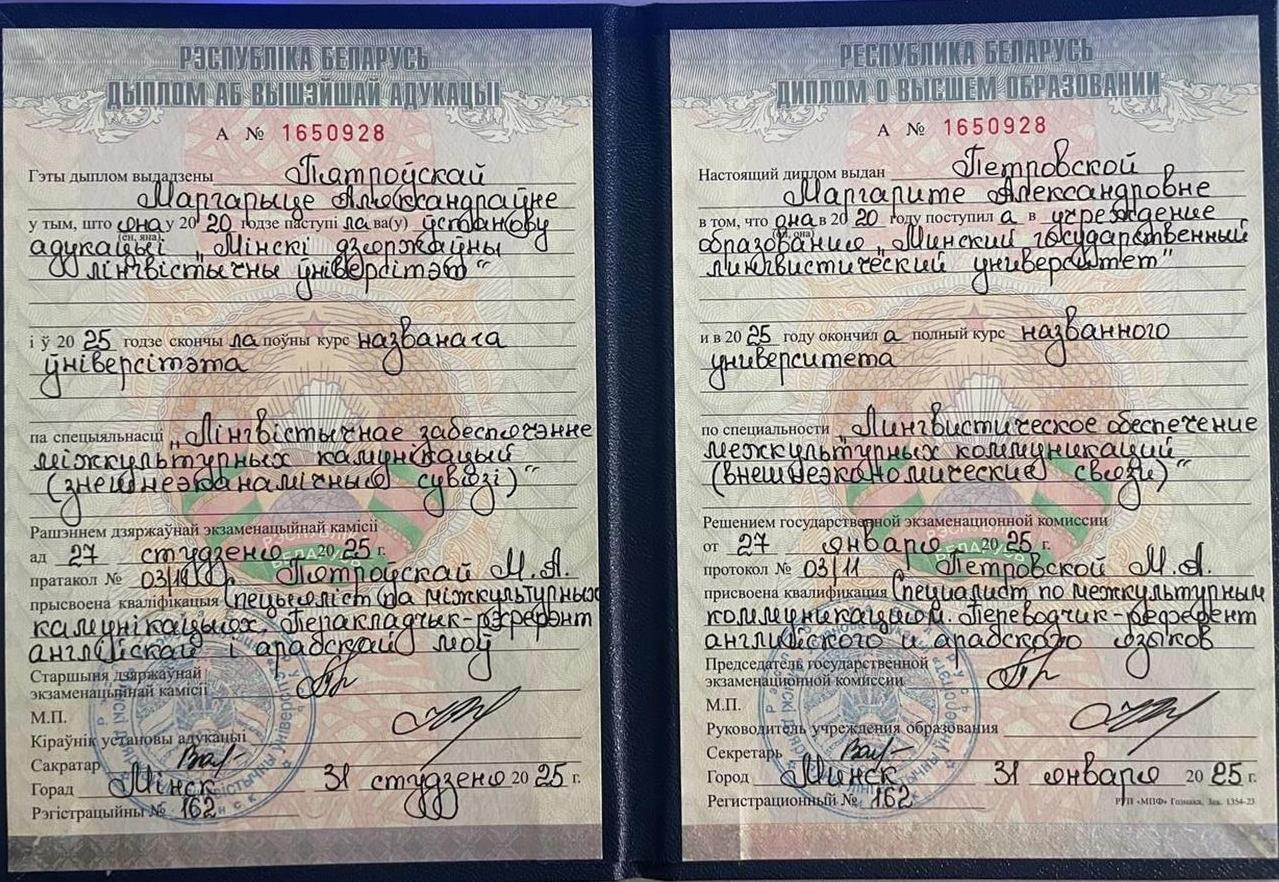 РЭСПУБЛІКА БЕЛАРУСЬ
ДЫПЛОМ АБ ВЫШЭЙШАЙ АДУКАЦЫІ
А № 1650928
Гэты дыплом выдадзены Пятроўскай
Маргарыце Аляксандраўне
у тым, што яна у 2020 годзе паступі ла ва(у) ўстанову
(ён, яна)
адукацыі „Мінскі дзяржаўны
лінгвістычны ўніверсітэт“
і ў 2025 годзе скончы ла поўны курс названага
ўніверсітэта
па спецыяльнасці „Лінгвістычнае забеспячэнне
міжкультурных камунікацый
(знешнеэканамічныя сувязі)“
Рашэннем дзяржаўнай экзаменацыйнай камісіі
ад 27 студзеня 2025 г.
пратакол № 03/11 Пятроўскай М.А.
прысвоена кваліфікацыя Спецыяліст па міжкультурных
камунікацыях. Перакладчык-рэферэнт
англійскай і арабскай моў
Старшыня дзяржаўнай
экзаменацыйнай камісіі
М.П.
Кіраўнік установы адукацыі
Сакратар
Горад Мінск 31 студзеня 2025 г.
Рэгістрацыйны № 162
РЕСПУБЛИКА БЕЛАРУСЬ
ДИПЛОМ О ВЫСШЕМ ОБРАЗОВАНИИ
А № 1650928
Настоящий диплом выдан Петровской
Маргарите Александровне
в том, что она в 2020 году поступил а в учреждение
(он, она)
образования „Минский государственный
лингвистический университет“
и в 2025 году окончил а полный курс названного
университета
по специальности „Лингвистическое обеспечение
межкультурных коммуникаций
(внешнеэкономические связи)“
Решением государственной экзаменационной комиссии
от 27 января 2025 г.
протокол № 03/11 Петровской М.А.
присвоена квалификация Специалист по межкультурным
коммуникациям. Переводчик-референт
английского и арабского языков
Председатель государственной
экзаменационной комиссии
М.П.
Руководитель учреждения образования
Секретарь
Город Минск 31 января 2025 г.
Регистрационный № 162
РУП «МПФ» Гознака. Зак. 1354-23